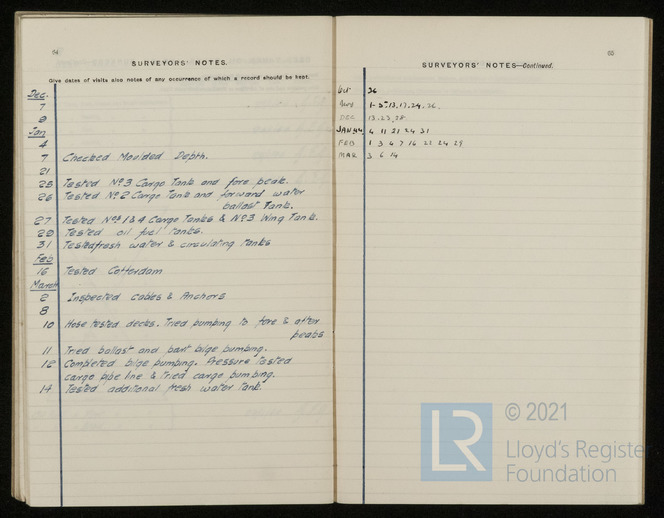 64
SURVEYORS' NOTES.
Give dates of visits also notes of any occurrence of which a record should be kept.
Dec.
7
9
Jan
4
7 Checked Moulded Depth.
21
25 Tested Nº 3 Cargo Tank and fore peak.
26 Tested Nº 2 Cargo Tank and forward water
ballast Tank.
27 Tested Nºs 1 & 4 Cargo Tanks & Nº 3 Wing Tank.
28 Tested oil fuel tanks.
31 Tested fresh water & circulating tanks
Feb
16 Tested Cofferdam
March
2 Inspected cables & Anchors
8
10 Hose tested decks. Tried pumping to fore & after
peaks
11 Tried ballast and part bilge pumping.
12 Completed bilge pumping. Pressure tested
cargo pipe line & tried cargo pumping.
14 Tested additional fresh water tank.
65
SURVEYORS' NOTES—Continued.
Oct 26
Nov 1. 5. 13. 17. 24. 26.
DEC 13. 23. 28.
JAN 4 11 21 24 31
FEB 1 3 4 7 16 22 24 29
MAR 3 6 14
LR
© 2021
Lloyd's Register
Foundation